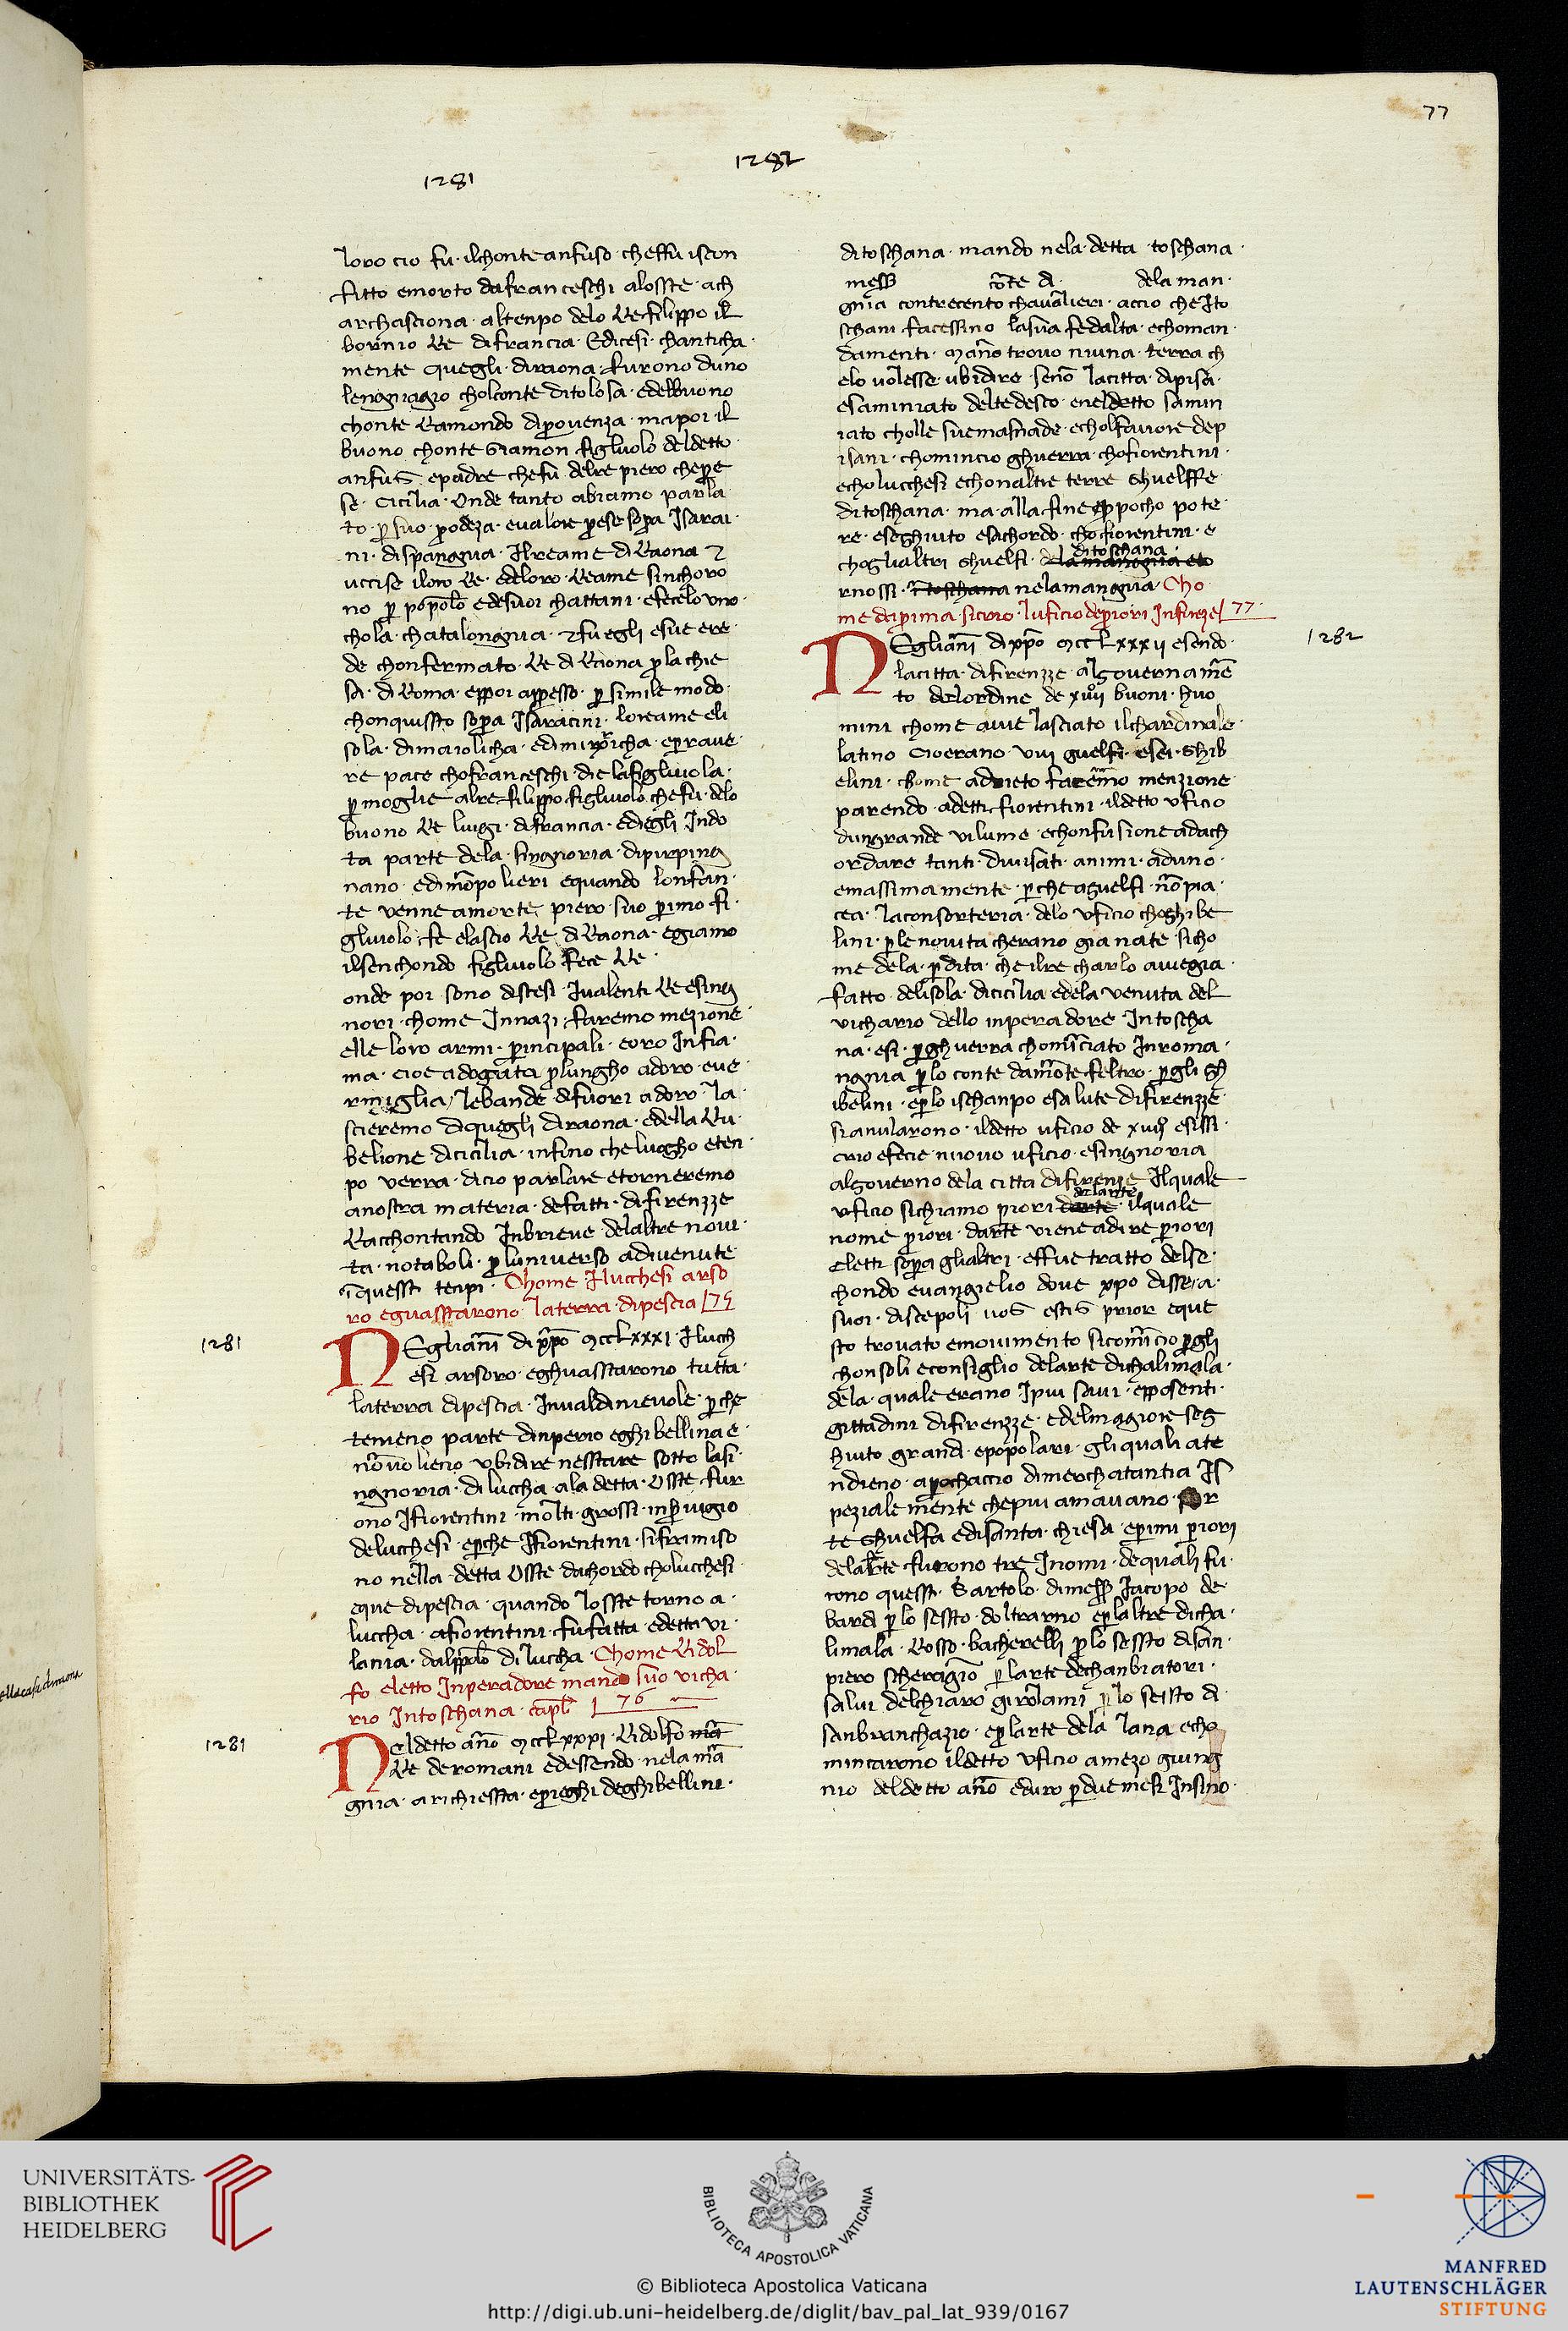 77
1281
1282
loro cio fu · ilchonte anfuso · cheffu iscon
fitto emorto dafranceschi aloste · ach
archasciona · altenpo delo Re filippo il
bornio Re difrancia · Edicesi · chanticha
mente quegli · diraona · furono duno
lengniagio cholconte ditolosa · edelbuono
chonte Ramondo diprouenza · mapoi il
buono chonte Giamon figluolo deldetto
anfus · epadre chefu delre piero cheprese
se · Cicilia · Onde tanto abiamo parla
to · p suo · prodeza · eualore prese sopra Isarai
ni · dispangnia · Ilreame diRaona 7
uccise iloro Re · edeloro · Reame sinchoro
no p popolo edesuoi chattani · efecelo uno
chola · chatalongnia · 7 fu egli esue ere
de chonfermato · Re diRaona p la chie
sa · di Roma · eppoi appresso · p simile modo
chonquisto sopra Isaracini · loreame eli
sola · dimaiolicha · ediminoricha · eperaue
re pace chofranceschi · die lafigliuola ·
p moglie alre filippo figliuolo chefu · delo
buono Re luigi · difrancia · ediegli Indo
ta parte dela · singnioria · dipirping
nano · edimopolieri equando lonfan
te venne amorte piero · suo primo fi
gliuolo · fe elascio Re diRaona · egiamo
ilsenchondo figliuolo fece Re ·
onde poi sono discesi · Iualenti Re esing
nori · chome Innazi · faremo mezione
elle loro armi · principali · eoro Infia
ma · cioe adogata plungho adoro · eue
rmiglia / lebande difuori adoro · la
scieremo diquegli diraona · edella Ru
belione dicicilia · infino che luogho eten
po verra · dicio parlare etorneremo
anostra materia · defatti · difirenzze
Racchontando Inbrieue delaltre noui
ta · notaboli · p luniuerso adiuenute
iquesti tenpi · Chome Ilucchesi arso
ro eguastarono laterra · dipescia / 75
1281
NEgliani di xpo MccLxxxi · Ilucch
esi arsoro · eghuasstarono tutta
laterra dipescia · Inualdinieuole · pche
teneno parte dinperio eghibellina e
nouolieno ubidire nesstare sotto lasi
ngnoria · di luccha · ala detta · Osste · fur
ono Ifiorentini · molti · grossi · inseruigio
delucchesi · epche Ifiorentini · siframiso
no nella · detta Osste · dachordo cholucchesi
eque dipescia · quando losste torno a ·
luccha · afiorentini · fu fatta · edetta vi
lania · dalppolo di luccha · Chome Ridol
fo eletto Inperadore mando suo vicha
rio Intoschana · capl 76
1281
Neldetto ano MccLxxxi · Ridolfo ma
Re deromani edessendo · nela ma
gnia · arichiessta · eprieghi deghibellini ·
ditoschana · mando nela · detta toschana ·
mess cote di dela man ·
gnia contrecento chaualieri · accio che Ito
schani facessino lasua fedalta · echoman
damenti · Mano trouo niuna · terra ch
elo uolesse ubidire · seno lacitta dipisa ·
esaminiato deltedesco · eneldetto samin
iato cholle suemasnade · echolfauore dep
isani · chomincio ghuerra · chofiorentini ·
echolucchesi echonaltre terre Ghuelffe
ditoschana · ma · alla fine eppocho pote
re · eseghuito esachordo · chofiorentini · e
choglialtri Ghuelfi · ditoschana dlamanognia eto
rnossi · Itoschana nelamangnia · Cho
me deprima sicrio · luficio depriori Infirenze / 77 ·
1282
NEgliani di xpo MccLxxxii esendo
lacitta · difirenzze · algouernamé
to delordine de xiiii buoni · huo
mini chome auie lasciato ilchardinale ·
latino Cioerano · viii guelfi · esei · Ghib
elini · chome adrieto faremo menzione
parendo · adetti fiorentini · ildetto uficio
dungrande vilume · echonfusione adach
ordare tanti · diuisati · animi · aduno ·
emassima mente · pche aguelfi · no pia ·
cea · laconsorteria · delo uficio choghibe
lini · p le nouita cherano gia nate · sicho
me dela · pdita · che ilre charlo auiegia ·
fatto · delisola · dicicilia · edela venuta del
vichario dello inperadore · Intoscha
na · esi · p ghuerra chominciato Inroma
ngnia plo conte damotefeltro · p gli gh
ibelini · eplo ischanpo esalute difirenzze
sianularono · ildetto uficio de xiiii · esissi ·
crio efecie nuouo uficio · esingnoria
algouerno dela citta difirenze Ilquale
uficio sichiamo priori delarte darte · ilquale
nome priori · darte viene adire priori
eletti sopra glialtri · effue tratto delse
chondo euangielio doue xpo disse a ·
suoi · discepoli uos estis prior eque
sto trouato emouimento sicomicio pgli
honsoli econsiglio delarte dichalimala ·
dela · quale erano Ipiu saui · epposenti ·
gittadini difirenzze · edelmagiore seg
huito grandi · epopolari · gliquali ate
ndieno · aprochaccio dimerchatantia Is
peziale mente chepiu amauano · par
te Ghuelfa edisanta · chiesa · eprimi priori
delarte furono tre Inomi · dequali fu
rono questi · Bartolo · dimess Iacopo de
bardi plo sessto · doltrarno eplaltre dicha
limala · Rosso · bacherelli plo sessto disan ·
piero scheragio p larte dechanbiatori ·
salui delchiaro girolami plo sessto di
sanbranchazio · eplarte dela lana echo
mincarono ildetto uficio amezo giung
nio deldetto ano eduro p due mesi Insino ·
UNIVERSITÄTS-
BIBLIOTHEK
HEIDELBERG
BIBLIOTECA APOSTOLICA VATICANA
© Biblioteca Apostolica Vaticana
http://digi.ub.uni-heidelberg.de/diglit/bav_pal_lat_939/0167
MANFRED
LAUTENSCHLÄGER
STIFTUNG